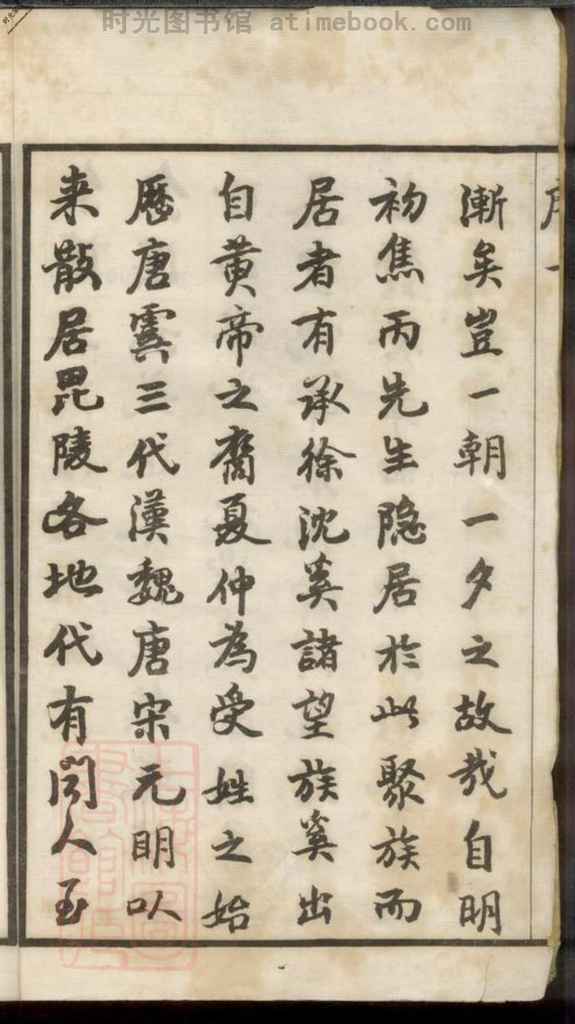 时光图书馆 atimebook.com
漸矣豈一朝一夕之故哉自明
初焦丙先生隐居於此聚族而
居者有承徐沈奚諸望族奚出
自黄帝之裔夏仲為受姓之始
歷唐虞三代漢魏唐宋元明以
来散居毘陵各地代有聞人至